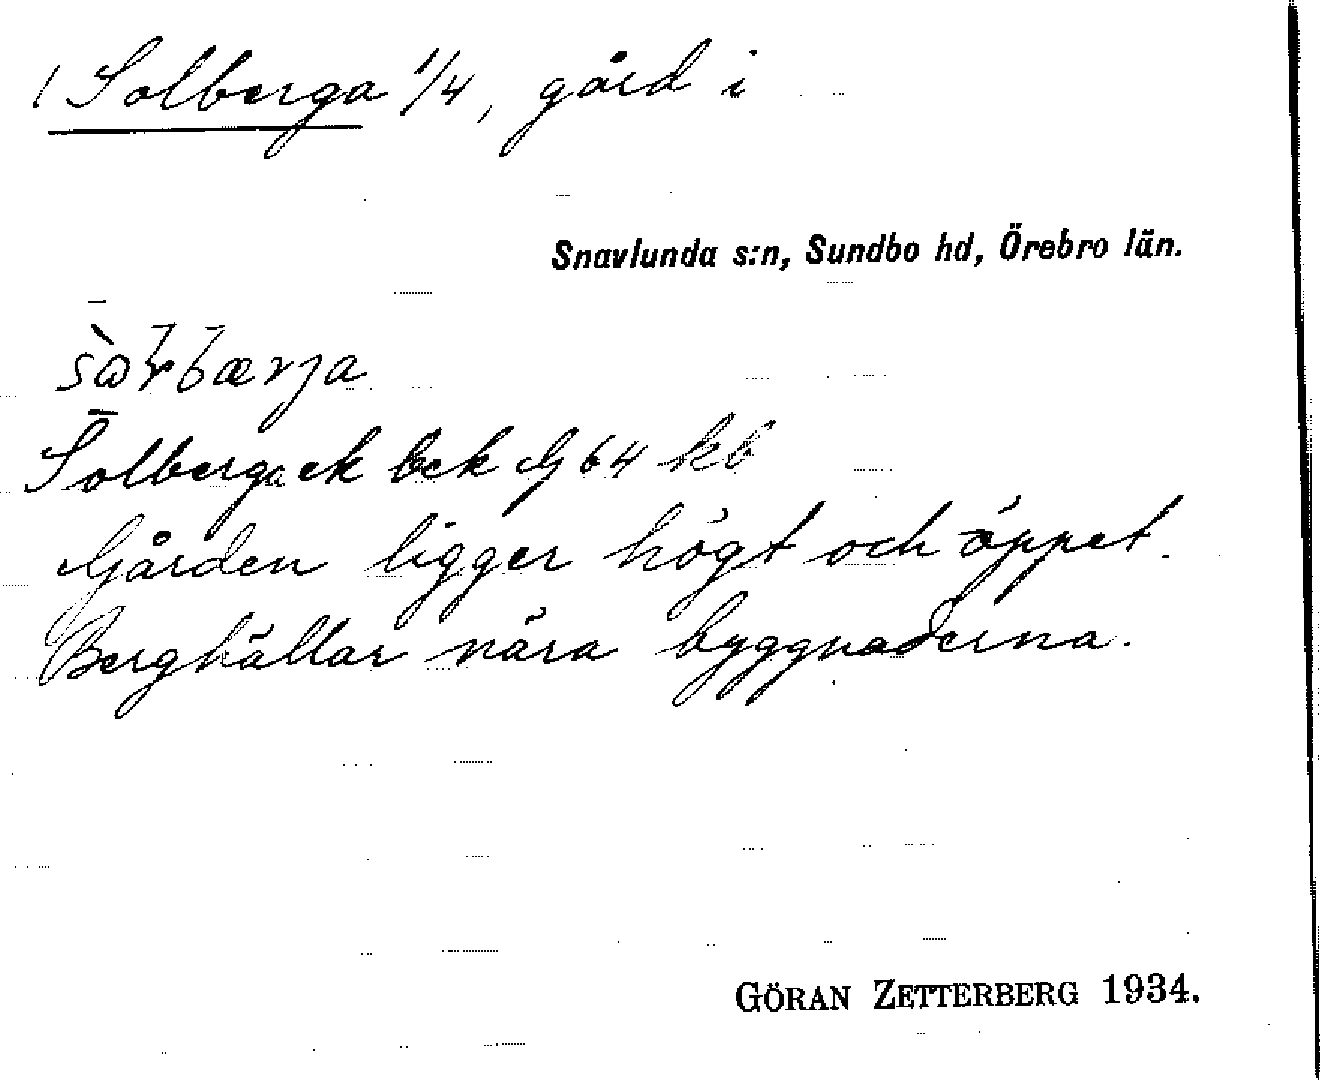 1 Solberga 1/4, gård i
Snavlunda s:n, Sundbo hd, Örebro län.
Solberga ek bek G 64 kb
Gården ligger högt och öppet.
Berghällar nära byggnaderna.
GÖRAN ZETTERBERG 1934.